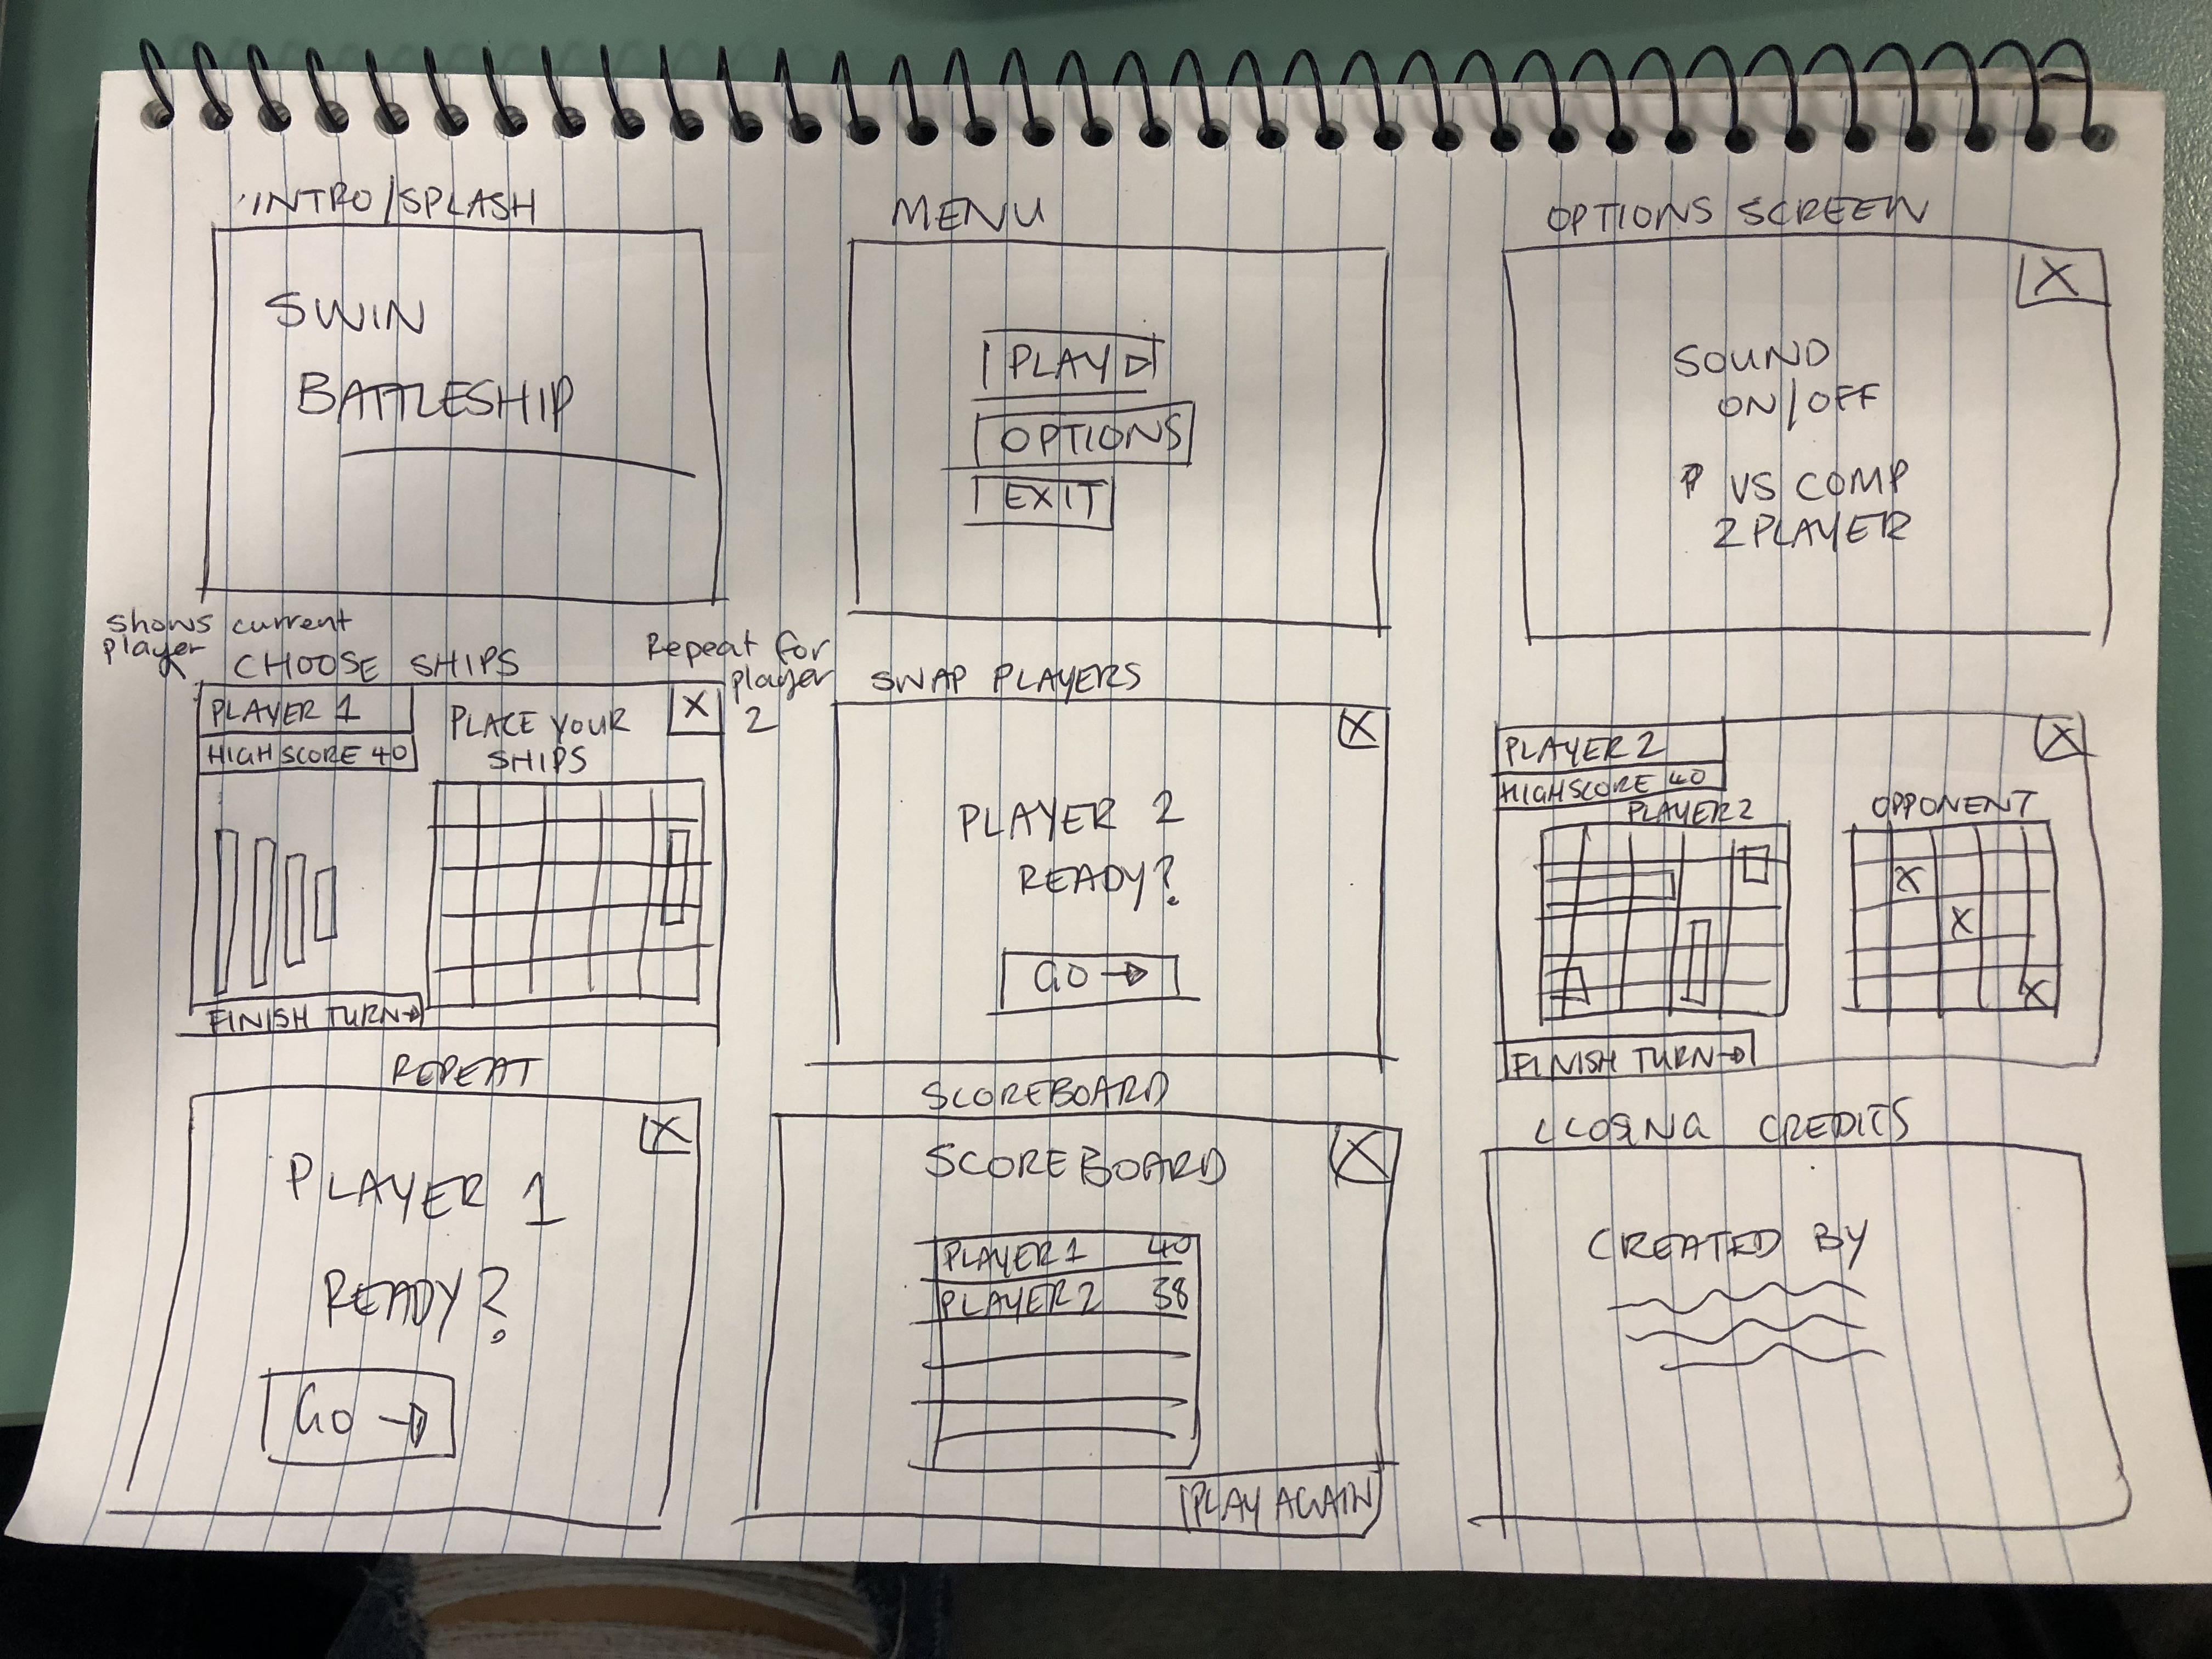 INTRO/SPLASH
SWIN
BATTLESHIP
MENU
PLAY
OPTIONS
EXIT
OPTIONS SCREEN
X
SOUND
ON/OFF
P VS COMP
2 PLAYER
shows current
player
CHOOSE SHIPS
Repeat for
player
2
PLAYER 1
HIGHSCORE 40
PLACE YOUR
SHIPS
X
FINISH TURN→
SWAP PLAYERS
X
PLAYER 2
READY?
GO →
PLAYER 2
HIGHSCORE 40
X
PLAYER 2
OPPONENT
X
X
X
FINISH TURN→
REPEAT
X
PLAYER 1
READY?
GO →
SCOREBOARD
SCOREBOARD
X
PLAYER 1 40
PLAYER 2 38
PLAY AGAIN
CLOSING CREDITS
CREATED BY